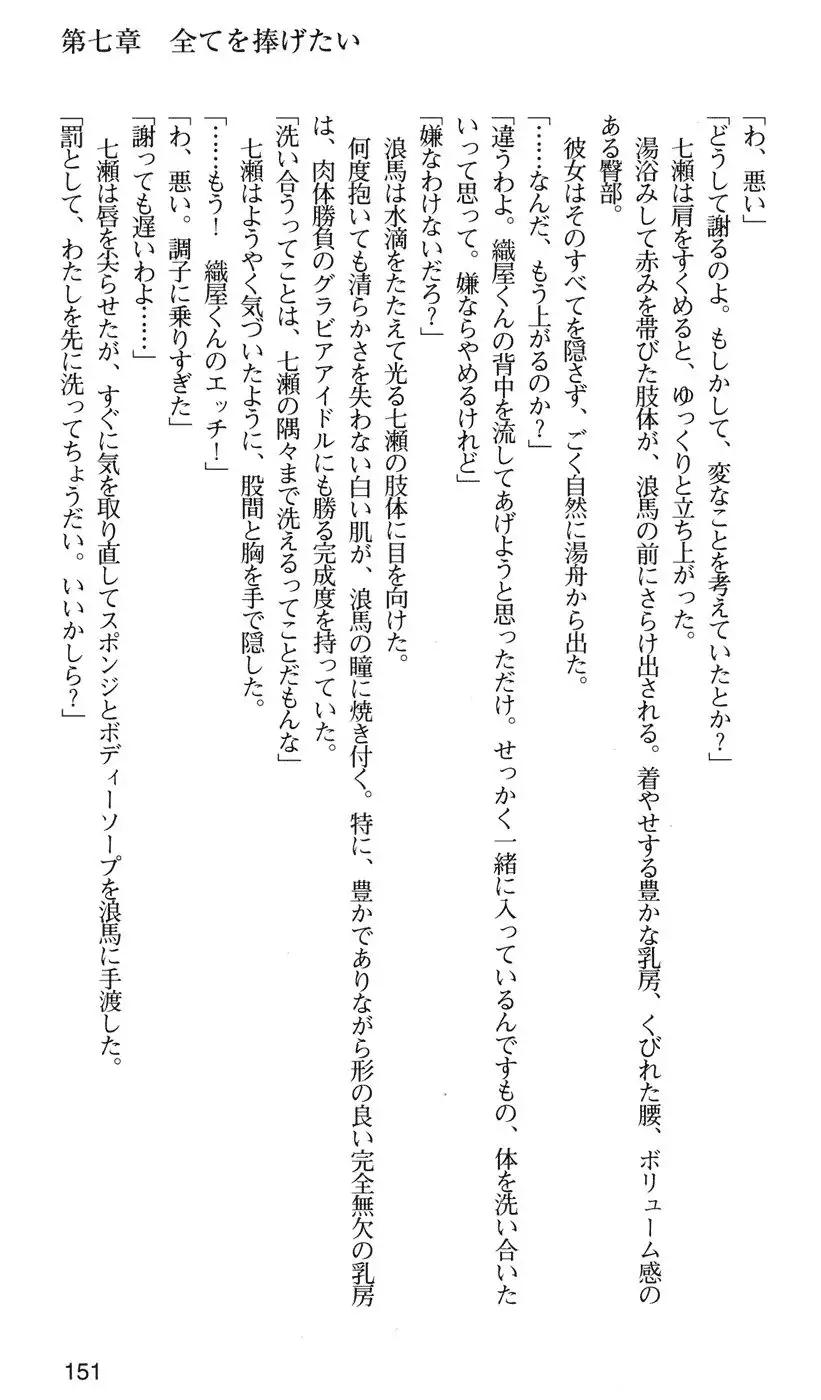 第七章　全てを捧げたい
「わ、悪い」
「どうして謝るのよ。もしかして、変なことを考えていたとか？」
七瀬は肩をすくめると、ゆっくりと立ち上がった。
湯浴みして赤みを帯びた肢体が、浪馬の前にさらけ出される。着やせする豊かな乳房、くびれた腰、ボリューム感の
ある臀部。
彼女はそのすべてを隠さず、ごく自然に湯舟から出た。
「……なんだ、もう上がるのか？」
「違うわよ。織屋くんの背中を流してあげようと思っただけ。せっかく一緒に入っているんですもの、体を洗い合いた
いって思って。嫌ならやめるけれど」
「嫌なわけないだろ？」
浪馬は水滴をたたえて光る七瀬の肢体に目を向けた。
何度抱いても清らかさを失わない白い肌が、浪馬の瞳に焼き付く。特に、豊かでありながら形の良い完全無欠の乳房
は、肉体勝負のグラビアアイドルにも勝る完成度を持っていた。
「洗い合うってことは、七瀬の隅々まで洗えるってことだもんな」
七瀬はようやく気づいたように、股間と胸を手で隠した。
「……もう！　織屋くんのエッチ！」
「わ、悪い。調子に乗りすぎた」
「謝っても遅いわよ……」
七瀬は唇を尖らせたが、すぐに気を取り直してスポンジとボディーソープを浪馬に手渡した。
「罰として、わたしを先に洗ってちょうだい。いいかしら？」
151